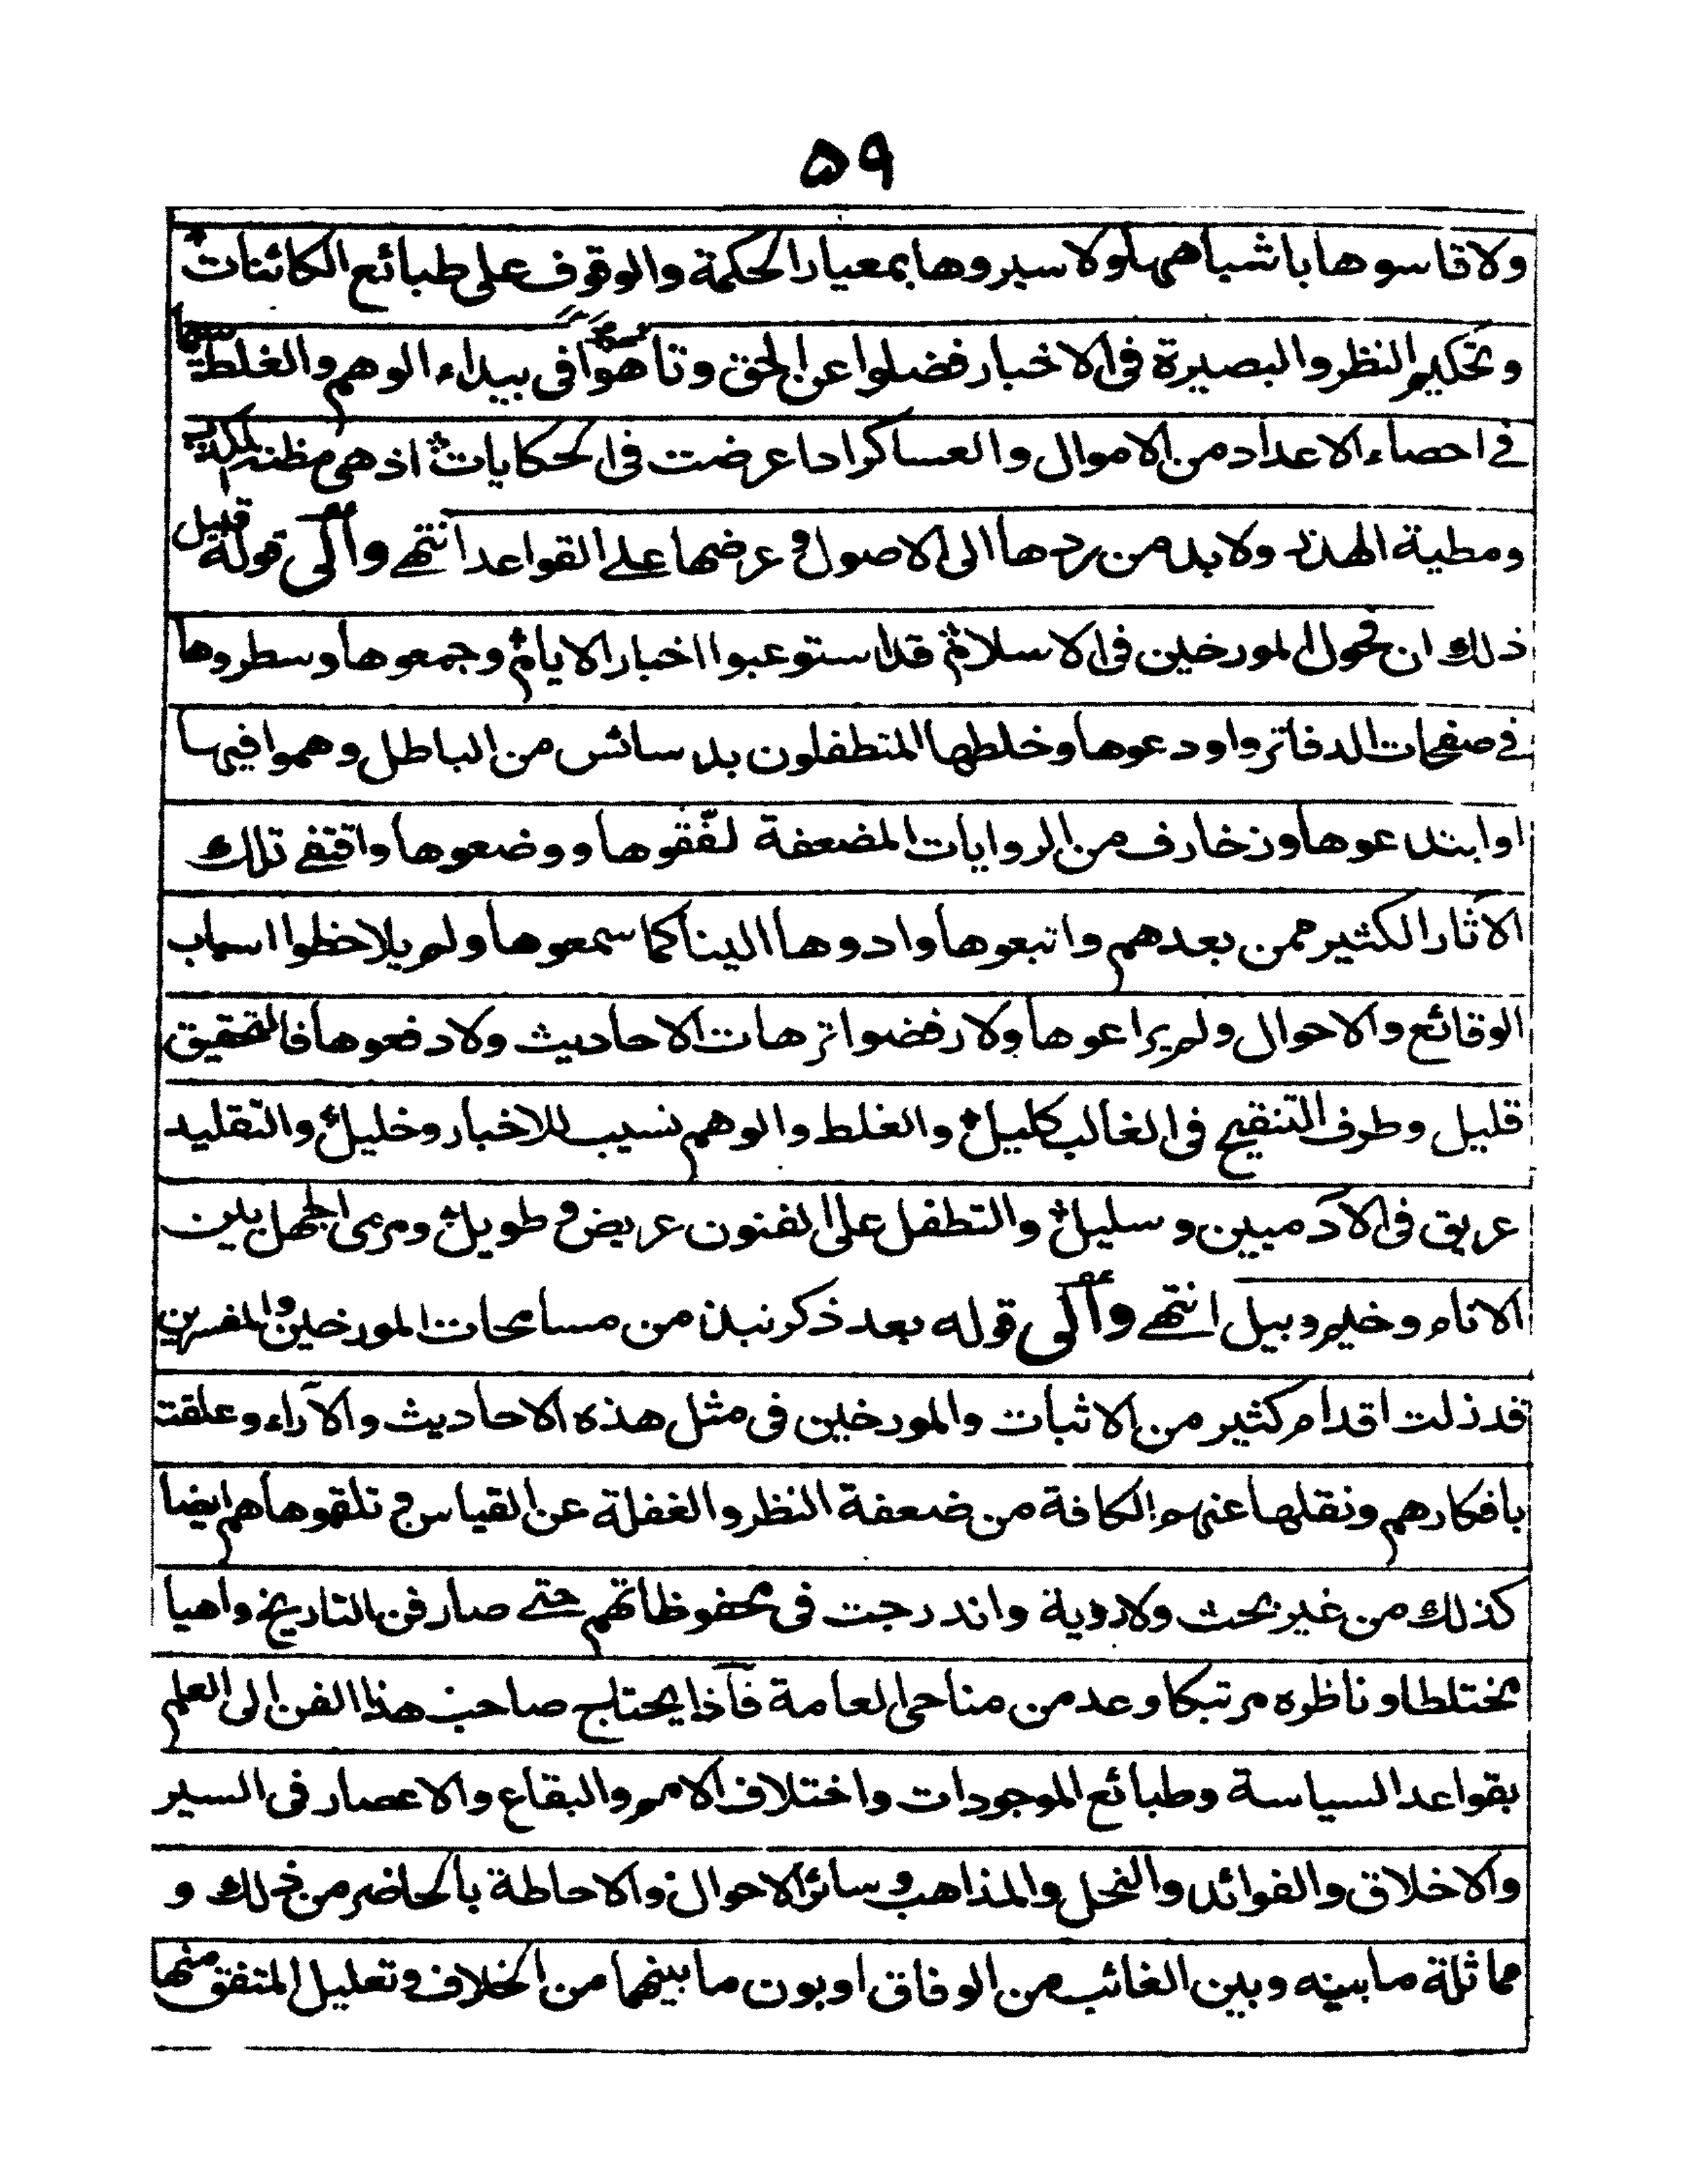 ۵۹
ولا قاسوها باشباهها ولا سبروها بمعيار الحكمة والوقوف على طبائع الكائنات
وتحكيم النظر والبصيرة فى الاخبار فضلوا عن الحق وتاهوا فى بيداء الوهم والغلط سيما
فى احصاء الاعداد من الاموال والعساكر اذا عرضت فى الحكايات اذ هى مظنة الكذب
ومطية الهذر ولابد من ردها الى الاصول وعرضها على القواعد انتهى وآلى قوله قبيل
ذلك ان فحول المورخين فى الاسلام قد استوعبوا اخبار الايام وجمعوها وسطروها
فى صفحات الدفاتر واودعوها وخلطها المتطفلون بدسائس من الباطل وهموا فيها
او ابتدعوها وزخارف من الروايات المضعفة لفّقوها ووضعوها واقتفى تلك
الآثار الكثير ممن بعدهم واتبعوها وادوها الينا كما سمعوها ولم يلاحظوا اسباب
الوقائع والاحوال ولم يراعوها ولا رفضوا ترهات الاحاديث ولا دفعوها فالتحقيق
قليل وطرف التنقيح فى الغالب كليل والغلط والوهم نسيب للاخبار وخليل والتقليد
عريق فى الآدميين وسليل والتطفل على الفنون عريض وطويل ومرعى الجهل بين
الانام وخيم وبيل انتهى وآلى قوله بعد ذكر نبذ من مسامحات المورخين والمفسرين
قد زلت اقدام كثير من الاثبات والمورخين فى مثل هذه الاحاديث والآراء وعلقت
بافكارهم ونقلها عنهم الكافة من ضعفة النظر والغفلة عن القياس وتلقوها هم ايضا
كذلك من غير بحث ولا روية واندرجت فى محفوظاتهم حتى صار فن التاريخ واهيا
مختلطا وناظره مرتبكا وعد من مناحى العامة فآذا يحتاج صاحب هذا الفن الى العلم
بقواعد السياسة وطبائع الموجودات واختلاف الامم والبقاع والاعصار فى السير
والاخلاق والفوائد والنحل والمذاهب وسائر الاحوال والاحاطة بالحاضر من ذلك و
مماثلة ما بينه وبين الغائب من الوفاق او بون ما بينهما من الخلاف وتعليل المتفق منها